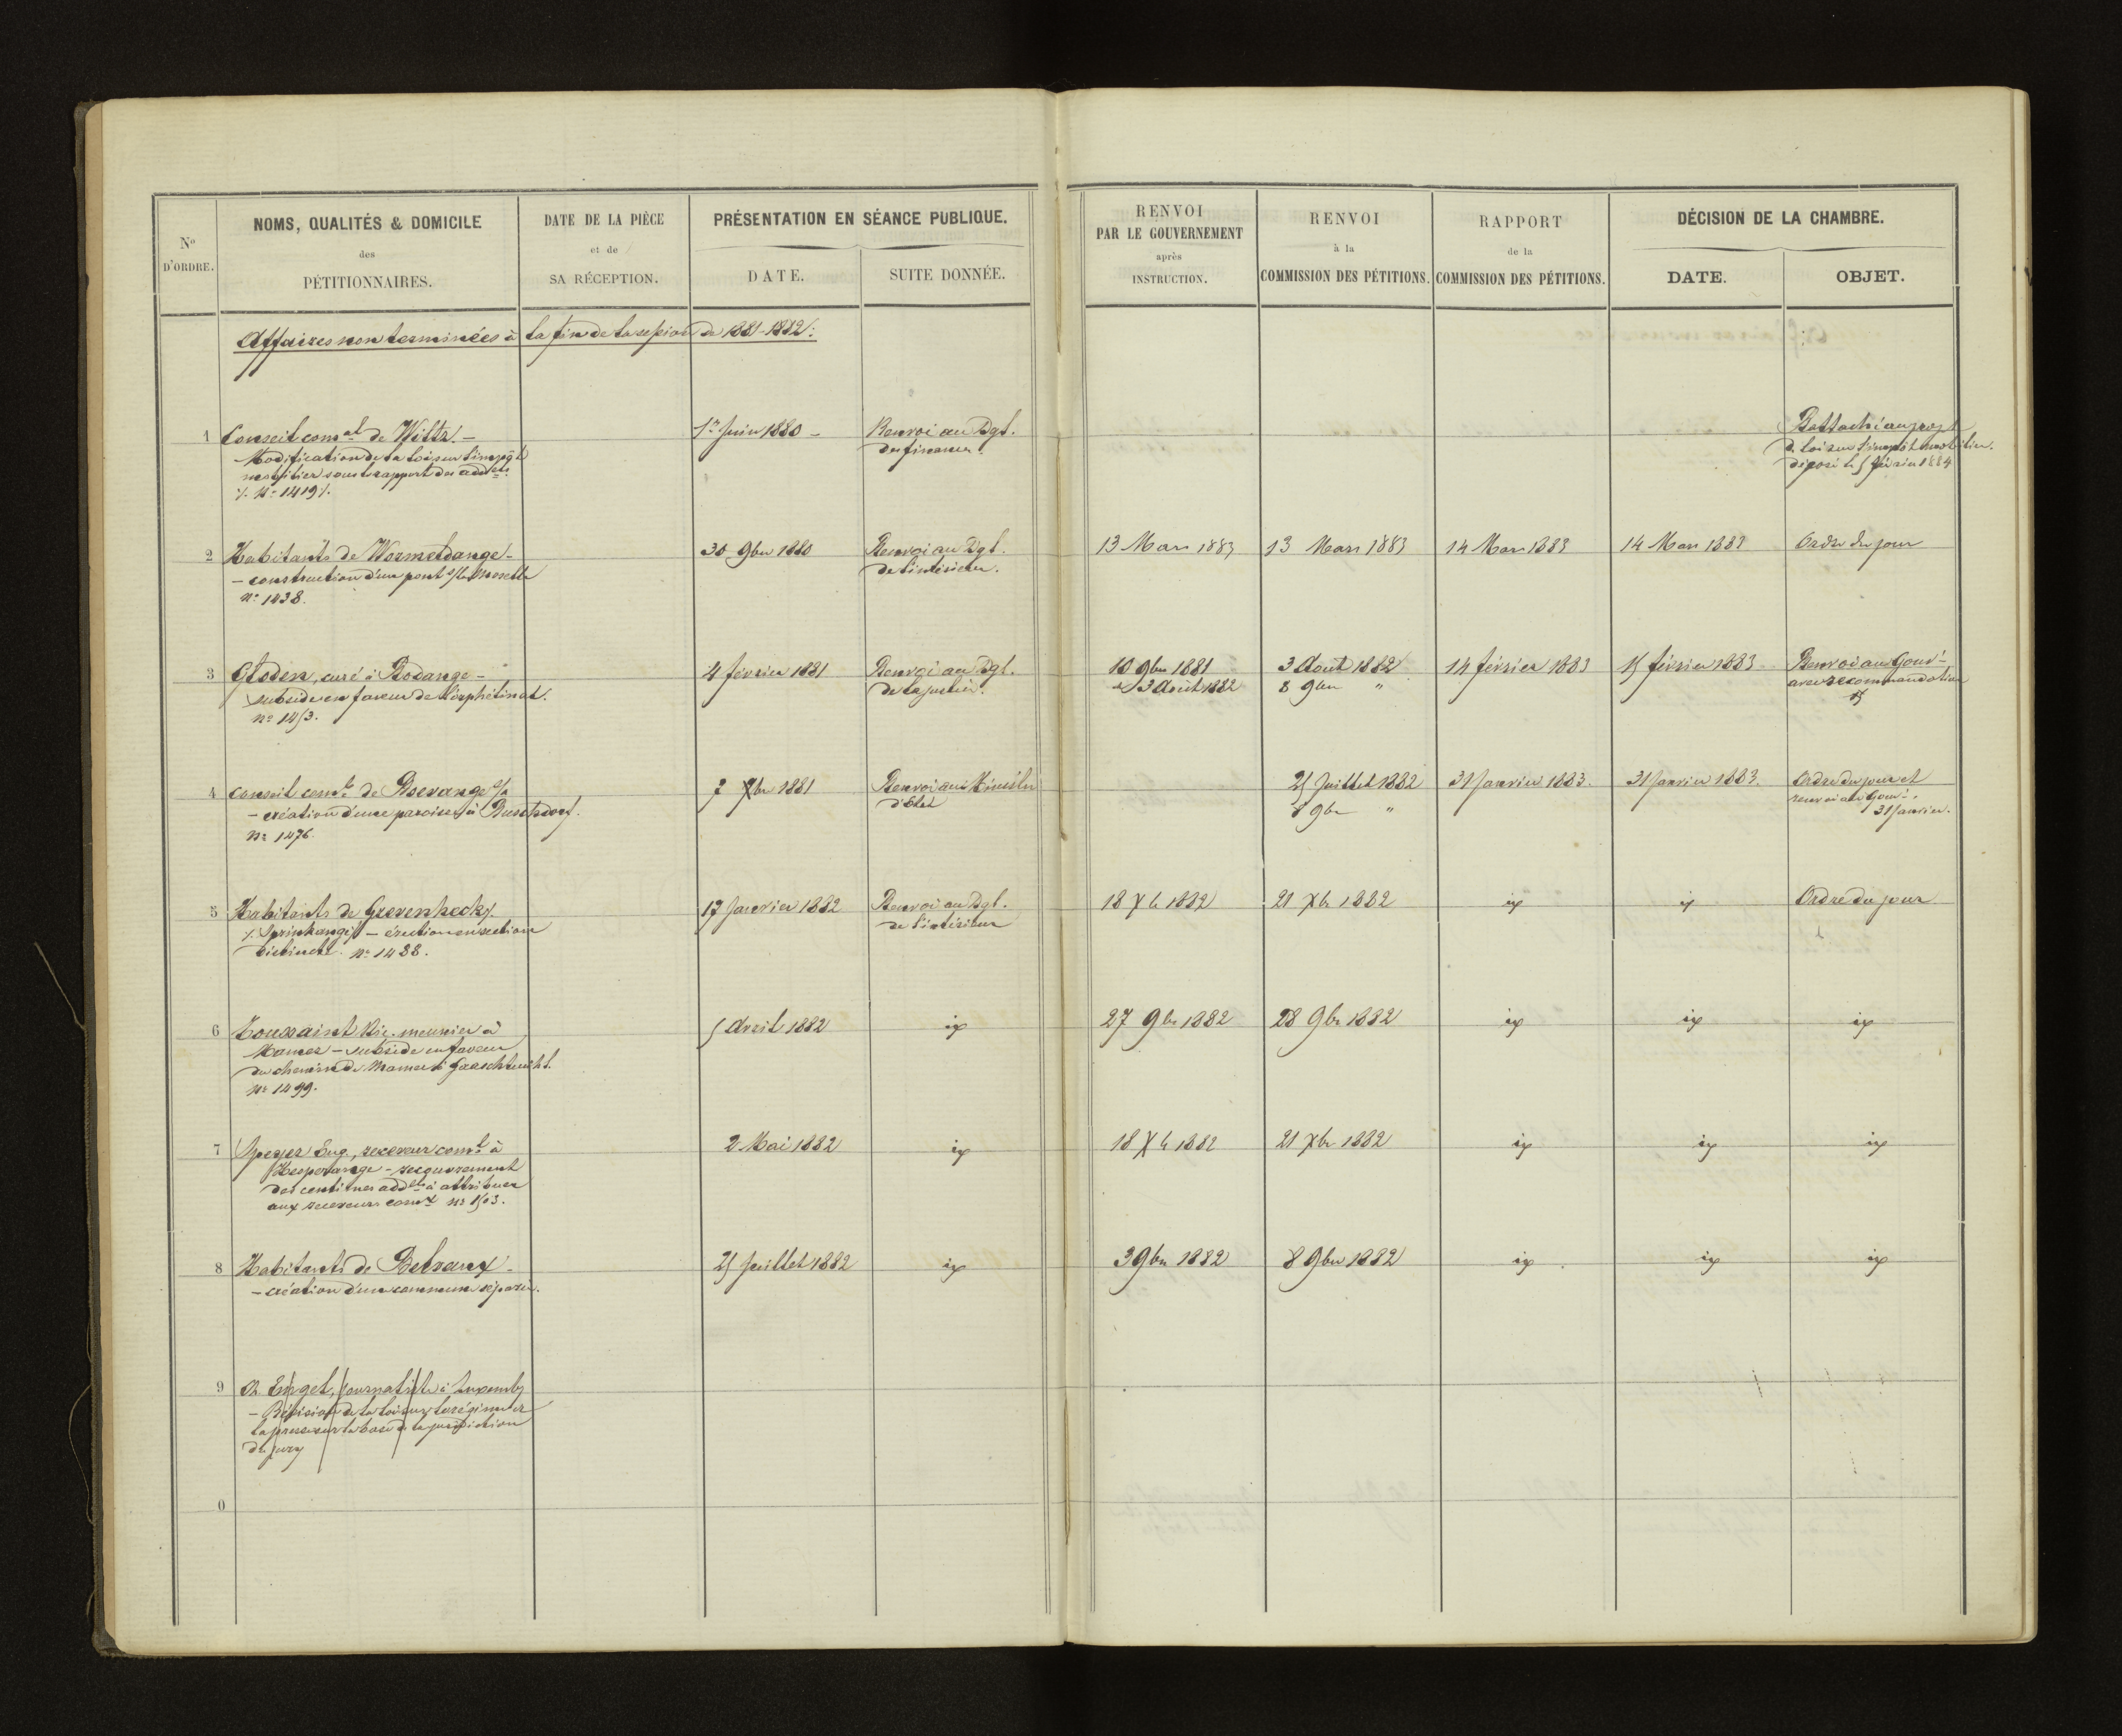 N° D'ORDRE.
NOMS, QUALITÉS & DOMICILE
des
PÉTITIONNAIRES.
DATE DE LA PIÈCE
et de
SA RÉCEPTION.
PRÉSENTATION EN SÉANCE PUBLIQUE.
DATE.
SUITE DONNÉE.
RENVOI
PAR LE GOUVERNEMENT
après
INSTRUCTION.
RENVOI
à la
COMMISSION DES PÉTITIONS.
RAPPORT
de la
COMMISSION DES PÉTITIONS.
DÉCISION DE LA CHAMBRE.
DATE.
OBJET.
Affaires non terminées à la fin de la session de 1881-1882:
1 Conseil comal de Wiltz. – 1er Juin 1880 – Renvoi au Dgl. Rattaché au projet
Modification de la loi sur l'impôt des finances. de loi sur l'impôt mobilier.
mobilier sous le rapport des addels. déposé le 5 février 1884
./. N° 1419 ./.
2 Habitants de Wormeldange – 30 9bre 1880 Renvoi au Dgl. 13 Mars 1883 13 Mars 1883 14 Mars 1883 14 Mars 1883 Ordre du jour
– construction d'un pont s/la Moselle de l'intérieur.
N° 1438.
3 Gloden, curé à Rodange – 4 février 1881 Renvoi au Dgl. 10 9bre 1881 3 Aout 1882 14 février 1883 15 février 1883 Renvoi au Gouvt
subside en faveur de l'orphelinat. de la justice. et 3 Août 1882 8 9bre " avec recommandation
N° 1453.
4 Conseil comal de Boevange s/a 7 Xbre 1881 Renvoi au Ministre 25 Juillet 1882 31 Janvier 1883. 31 Janvier 1883. Ordre du jour et
– création d'une paroisse à Buschdorf. d'Etat 8 9bre " renvoi au Gouvt.
N° 1476. 31 Janvier.
5 Habitants de Grevenknecky. 17 Janvier 1882 Renvoi au Dgl. 18 Xb 1882 21 Xbr 1882 id id Ordre du jour
– érection en section de l'intérieur
distincte. N° 1488.
6 Toussaint Nic. meunier à 5 Avril 1882 id 27 9br 1882 28 9br 1882 id id id
Mamer – subside en faveur
du chemin de Mamer à
N° 1499.
7 Speyer Eug., receveur coml à 2 Mai 1882 id 18 Xb 1882 21 Xbr 1882 id id id
Hesperange – recouvrement
des centimes addels à attribuer
aux receveurs comx N° 1503.
8 Habitants de Belvaux – 25 Juillet 1882 id 3 9bre 1882 8 9bre 1882 id id id
– création d'une commune séparée.
9 Ch. Engel, journaliste à Luxembg
– Révision de la loi sur le régime de
la presse sur la base de la juridiction
du jury
0